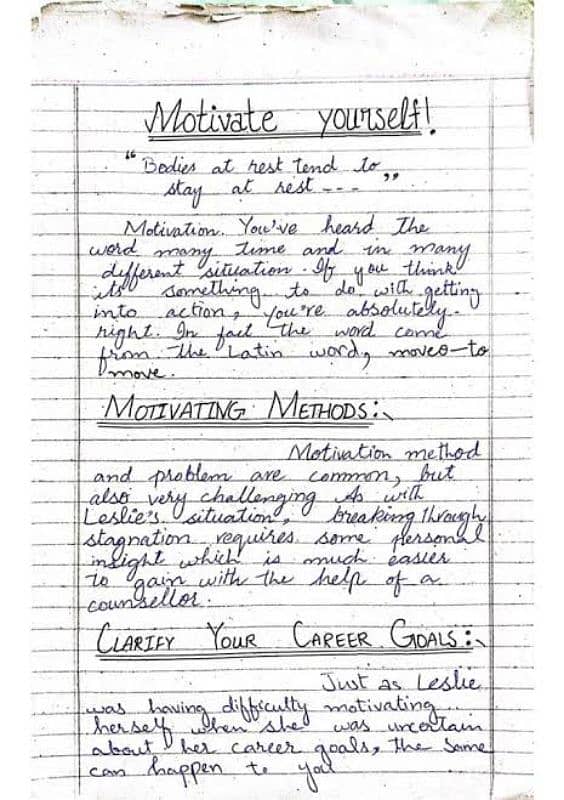 Motivate yourself!
"Bodies at rest tend to
stay at rest - - - "
Motivation. You've heard the
word many time and in many
different situation. If you think
its something to do with getting
into action, you're absolutely
right. In fact the word come
from the Latin word, moveo-to
move.
MOTIVATING METHODS:
Motivation method
and problem are common, but
also very challenging As with
Leslie's situation, breaking through
stagnation requires some personal
insight which is much easier
to gain with the help of a
counsellor.
CLARIFY YOUR CAREER GOALS:
Just as Leslie
was having difficulty motivating
herself when she was uncertain
about her career goals, the same
can happen to you